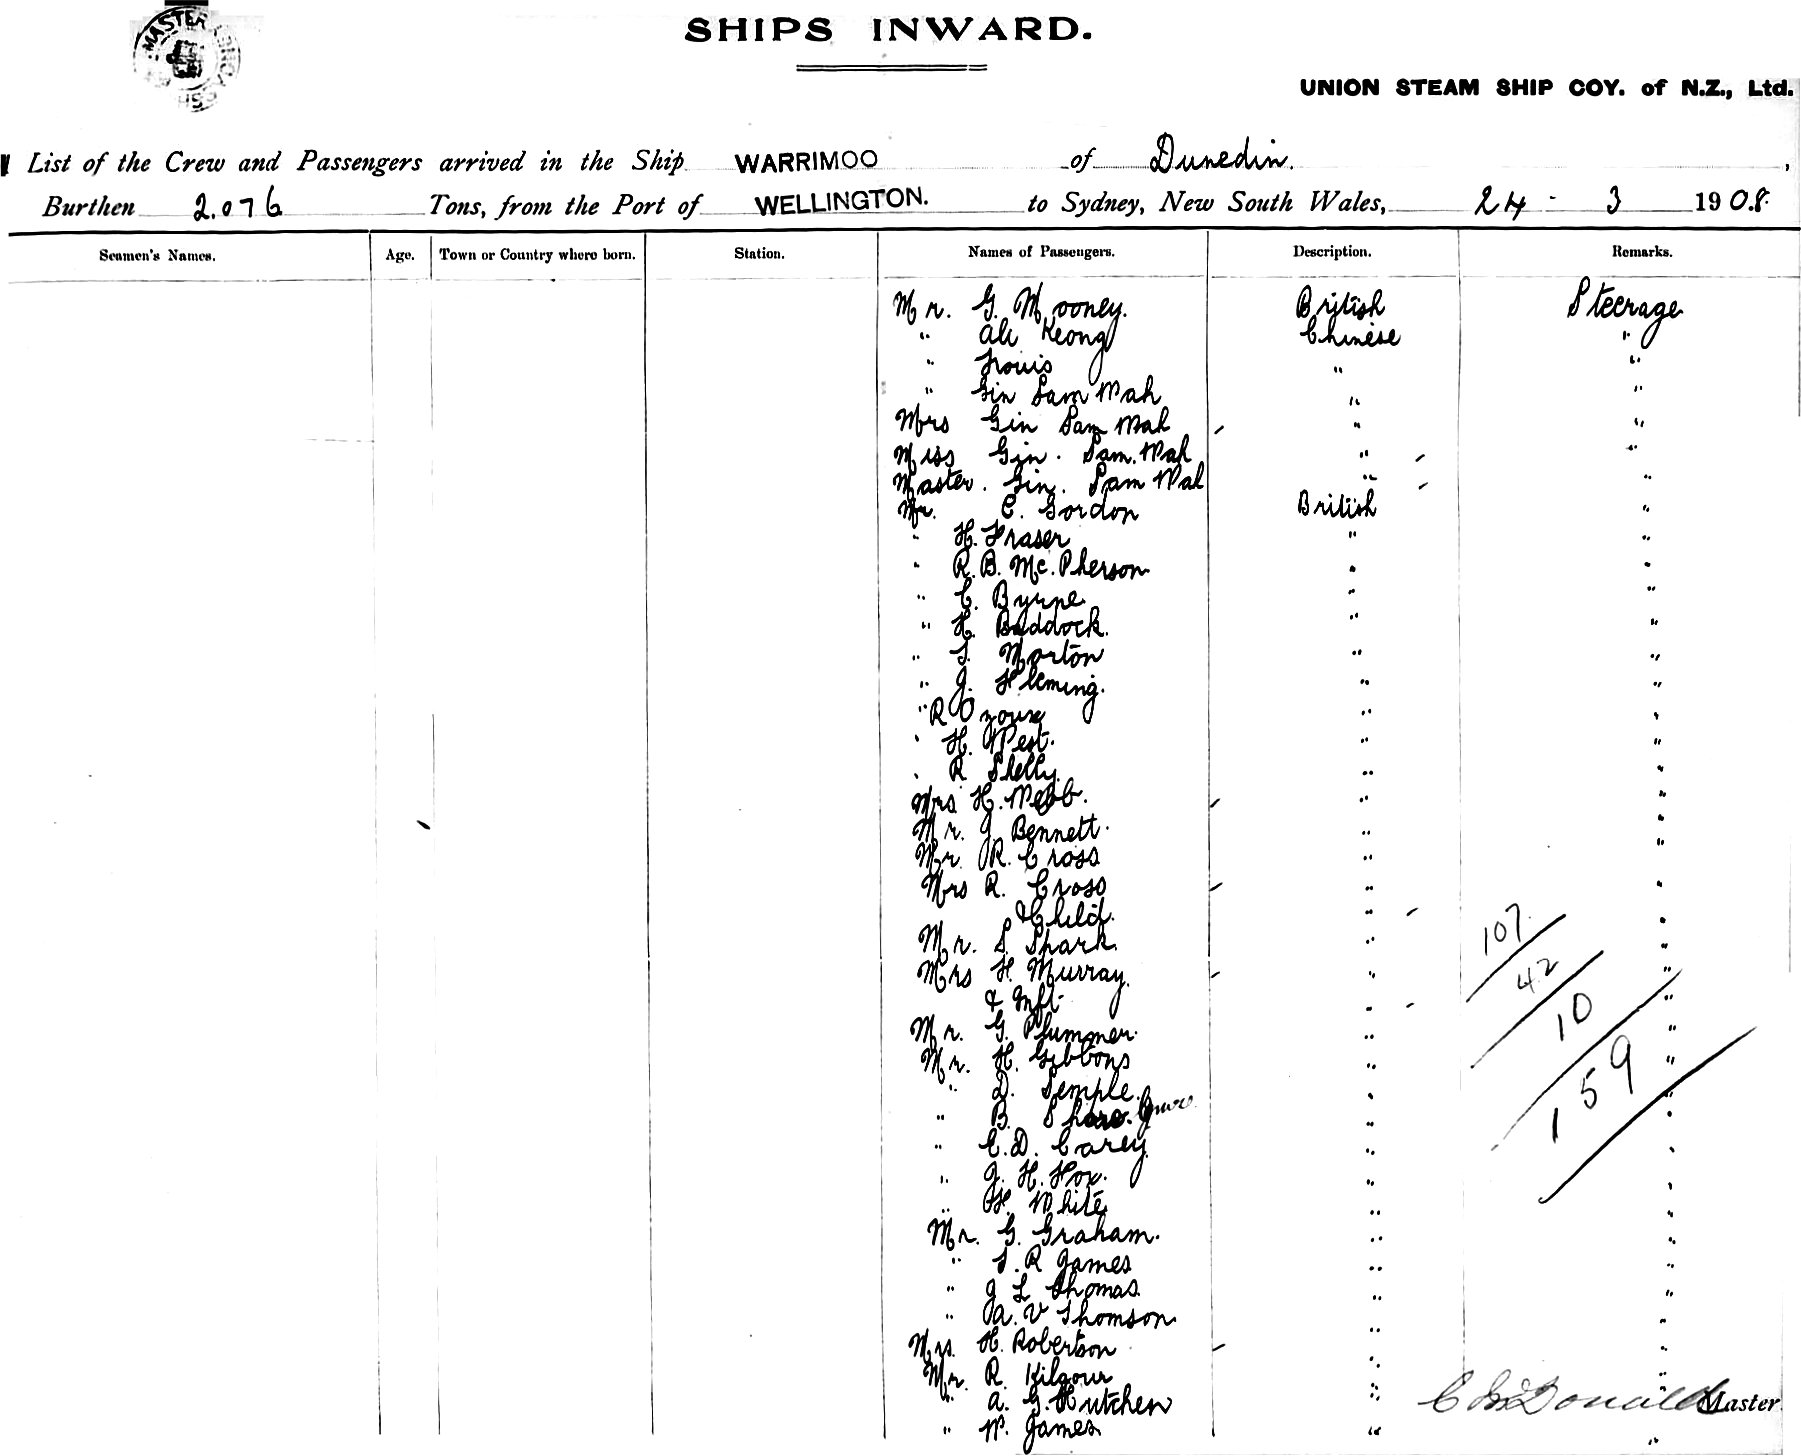 MASTER
SHIPS INWARD.
UNION STEAM SHIP COY. of N.Z., Ltd.
List of the Crew and Passengers arrived in the Ship WARRIMOO of Dunedin.,
Burthen 2.076 Tons, from the Port of WELLINGTON. to Sydney, New South Wales, 24 - 3 1908.
Seamen's Names. Age. Town or Country where born. Station. Names of Passengers. Description. Remarks.
Mr. G. Mooney. British Steerage
" Ah Keong Chinese "
" Louis " "
" Gin Sam Wah " "
Mrs Gin Sam Wah " "
Miss Gin. Sam. Wah " "
Master. Gin. Sam Wah " "
Mr. C. Gordon British "
" H. Fraser " "
" R. B. McPherson " "
" C. Byrne " "
" H. Baddock. " "
" S. Morton " "
" J. Fleming. " "
" R " "
" H. West. " "
" R Shelly " "
Mrs H. Webb. " "
Mr. J. Bennett. " "
Mr. R. Cross " "
Mrs R. Cross " "
& Child. " "
Mr. S. Shark. " "
Mrs H. Murray. " "
& Inft. " "
Mr. G. Plummer. " "
Mr. H. Gibbons " "
" D. Semple. " "
" B. " "
" C. D. Carey " "
" J. H. Fox. " "
" H. White " "
Mr. G. Graham. " "
" S. R James " "
" J L Thomas. " "
" A. V Thomson. " "
Mrs. H. Robertson " "
Mr. R. Kilgour " "
" A. G. Hutchen "
" W. James " "
107
42
10
159
C McDonald Master